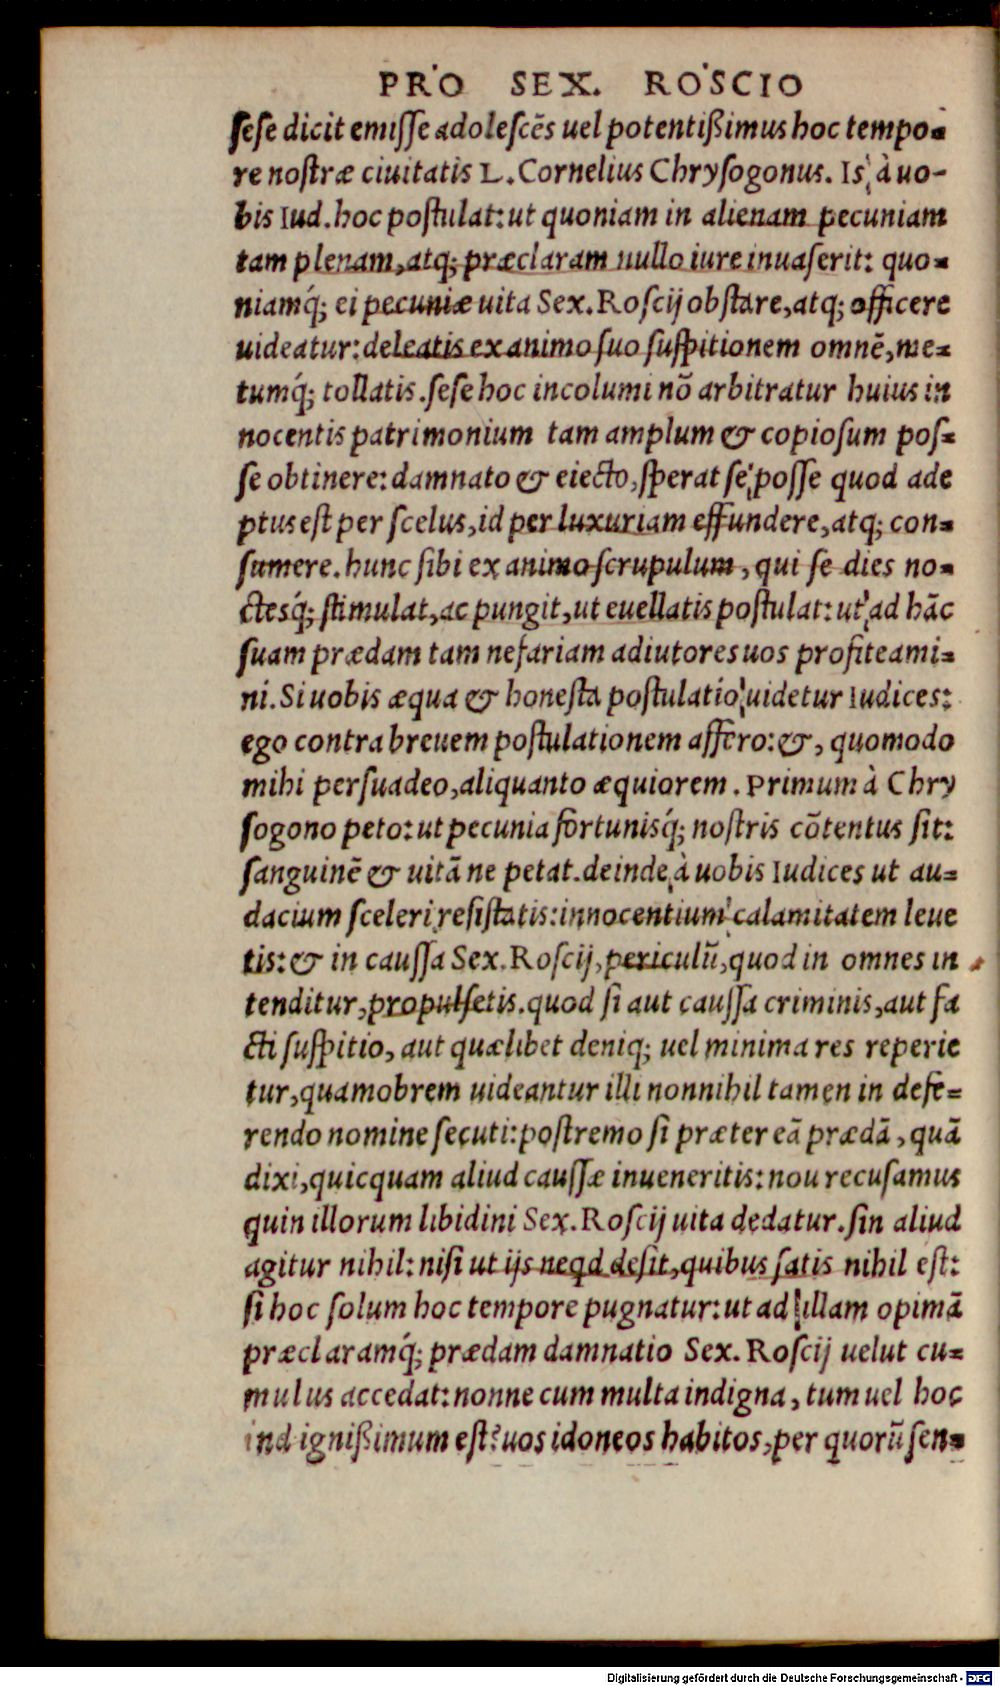 PRO SEX. ROSCIO
ſeſe dicit emiſſe adoleſcẽs uel potentißimus hoc tempo-
re noſtræ ciuitatis L. Cornelius Chryſogonus. Is, à uo-
bis Iud. hoc poſtulat: ut quoniam in alienam pecuniam
tam plenam, atq; præclaram nullo iure inuaſerit: quo-
niamq́; ei pecuniæ uita Sex. Roſcij obſtare, atq; officere
uideatur: deleatis ex animo ſuo ſuſpitionem omnẽ, me-
tumq́; tollatis. ſeſe hoc incolumi nõ arbitratur huius in
nocentis patrimonium tam amplum & copioſum poſ-
ſe obtinere: damnato & eiecto, ſperat ſe, poſſe quod ade
ptus eſt per ſcelus, id per luxuriam effundere, atq; con-
ſumere. hunc ſibi ex animo ſcrupulum, qui ſe dies no-
ctesq́; ſtimulat, ac pungit, ut euellatis poſtulat: ut, ad hãc
ſuam prædam tam nefariam adiutores uos profiteami-
ni. Si uobis æqua & honeſta poſtulatio uidetur Iudices:
ego contra breuem poſtulationem affero: &, quomodo
mihi perſuadeo, aliquanto æquiorem. Primum à Chry
ſogono peto: ut pecunia fortunisq́; noſtris cõtentus ſit:
ſanguinẽ & uitã ne petat. deinde, à uobis Iudices ut au-
dacium ſceleri reſiſtatis: innocentium calamitatem leue
tis: & in cauſſa Sex. Roſcij, periculũ, quod in omnes in
tenditur, propulſetis. quod ſi aut cauſſa criminis, aut fa
cti ſuſpitio, aut quælibet deniq; uel minima res reperie
tur, quamobrem uideantur illi nonnihil tamen in defe-
rendo nomine ſecuti: poſtremo ſi præter eã prædã, quã
dixi, quicquam aliud cauſſæ inueneritis: nou recuſamus
quin illorum libidini Sex. Roſcij uita dedatur. ſin aliud
agitur nihil: niſi ut ijs neqd deſit, quibus ſatis nihil eſt:
ſi hoc ſolum hoc tempore pugnatur: ut ad illam opimã
præclaramq́; prædam damnatio Sex. Roſcij uelut cu-
mulus accedat: nonne cum multa indigna, tum uel hoc
indignißimum eſt? uos idoneos habitos, per quorũ ſen-
Digitalisierung gefördert durch die Deutsche Forschungsgemeinschaft - DFG